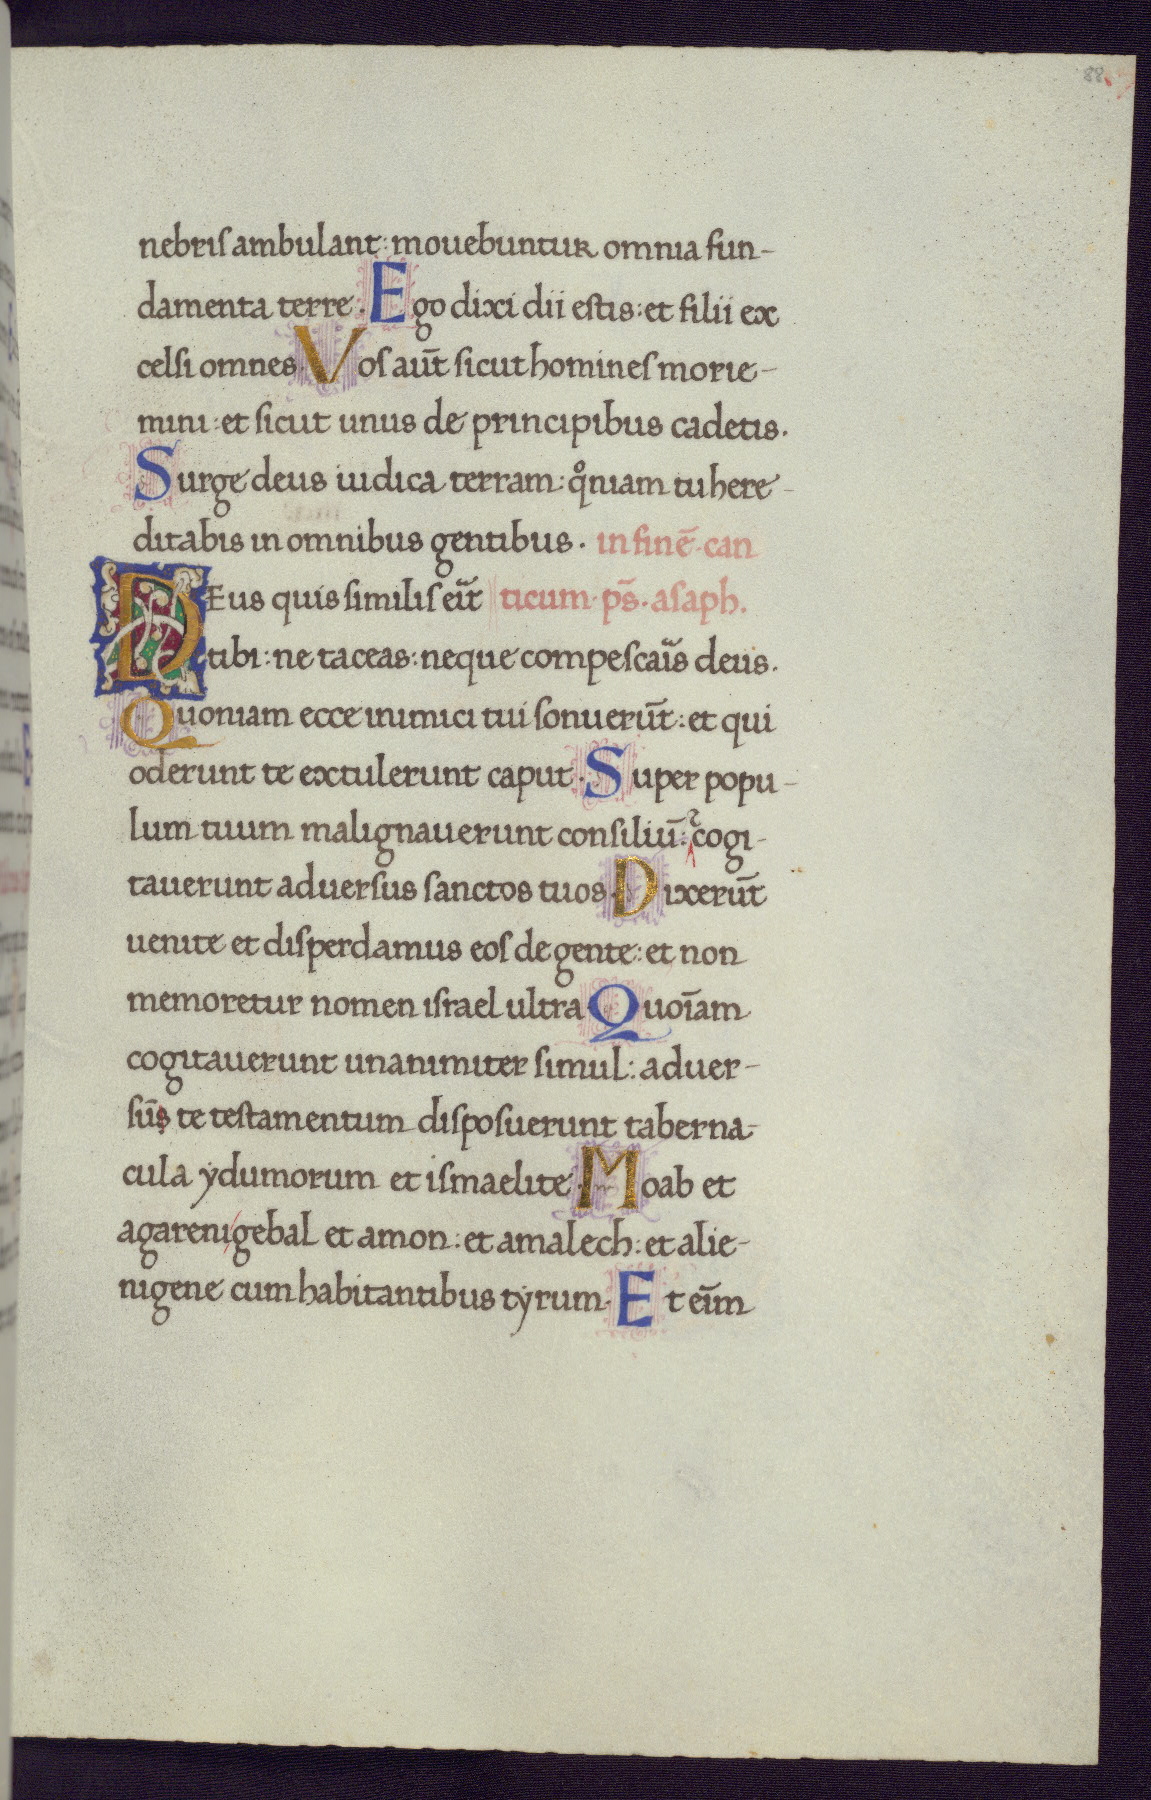 88.
nebris ambulant: mouebuntur omnia fun-
damenta terre. Ego dixi dii estis: et filii ex
celsi omnes. Vos aut̄ sicut homines morie-
mini: et sicut unus de principibus cadetis.
Surge deus iudica terram: qͦniam tu here-
ditabis in omnibus gentibus. in finē can
DEus quis similis eit̄ ticum. ps̄. asaph.
tibi: ne taceas: neque compescais̄ deus.
Quoniam ecce inimici tui sonuerūt: et qui
oderunt te extulerunt caput. Super popu-
lum tuum malignauerunt consiliū: ⁊ cogi-
tauerunt aduersus sanctos tuos. Dixerūt
uenite et disperdamus eos de gente: et non
memoretur nomen israel ultra. Quoīam
cogitauerunt unanimiter simul: aduer-
sūs te testamentum disposuerunt taberna-
cula ydumorum et ismaelite. Moab et
agareni/gebal et amon: et amalech: et alie-
nigene cum habitantibus tyrum. Et eīm